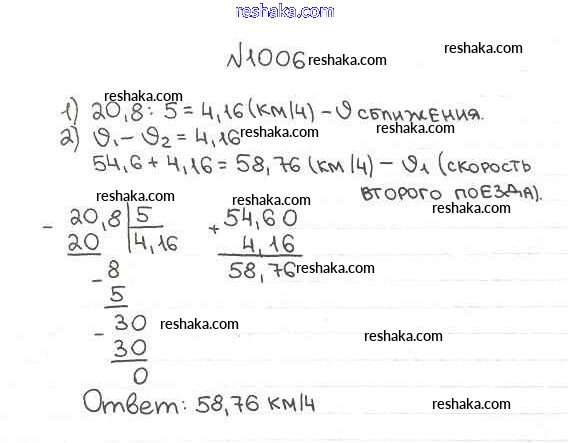 reshaka.com
№1006 reshaka.com reshaka.com
reshaka.com
1) 20,8 : 5 = 4,16 (км/ч) – υ сближения.
2) υ₁ – υ₂ = 4,16 reshaka.com reshaka.com
54,6 + 4,16 = 58,76 (км/ч) – υ₁ (скорость
второго поезда).
reshaka.com reshaka.com reshaka.com
- 20,8 | 5 + 54,60
20 | 4,16 4,16
- 8 58,76 reshaka.com
5
- 30 reshaka.com reshaka.com
30
0
Ответ: 58,76 км/ч reshaka.com